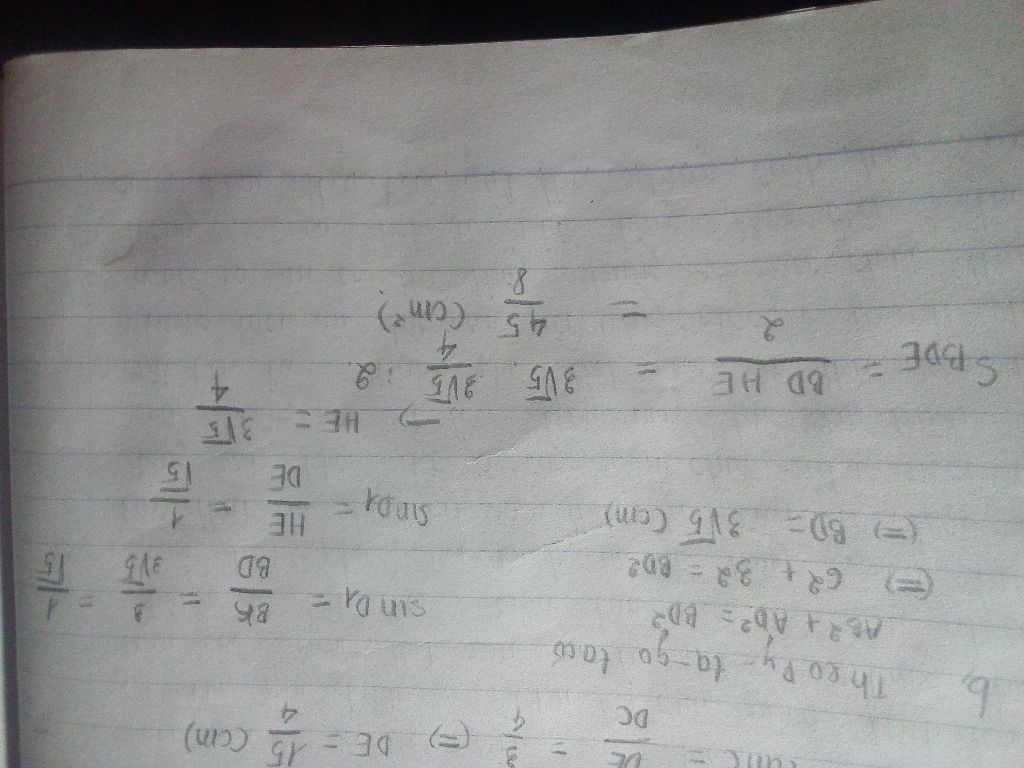 tanC = DE/DC = 3/4 (=) DE = 15/4 (cm)
b, Theo Py-ta-go ta có
AB² + AD² = BD²
(=) 6² + 3² = BD²
(=) BD = 3√5 (cm)
sinD1 = BK/BD = 3/3√5 = 1/√5
sinD1 = HE/DE = 1/√5
=) HE = 3√5/4
SBDE = BD HE/2 = 3√5 . 3√5/4 : 2
= 45/8 (cm²)